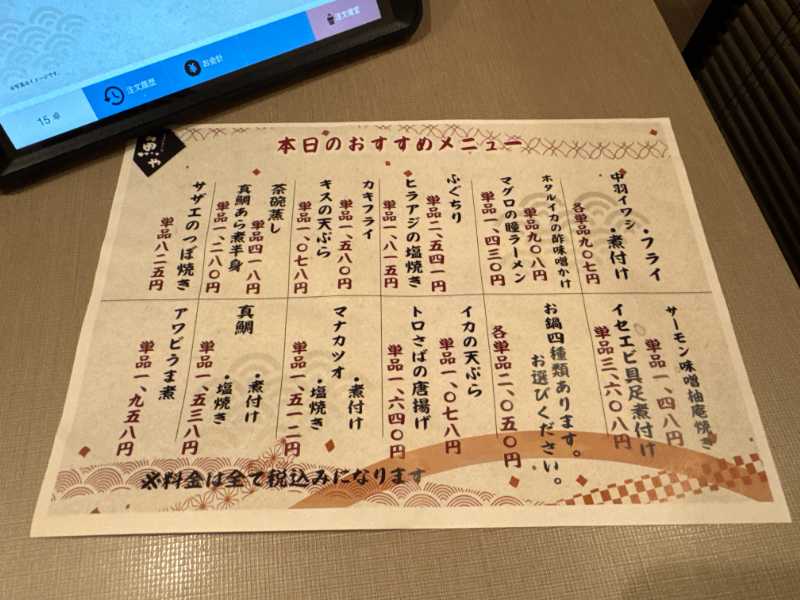 ※写真はイメージです。
注文確定
15 卓
注文履歴
お会計
魚や
本日のおすすめメニュー
中羽イワシ
・フライ
・煮付け
各単品九〇七円
ホタルイカの酢味噌かけ
単品九〇八円
マグロの瞳ラーメン
単品一、四三〇円
ふぐちり
単品二、五四一円
ヒラアジの塩焼き
単品一、八一五円
カキフライ
単品一、五八〇円
キスの天ぷら
単品一、〇七八円
茶碗蒸し
単品四一八円
真鯛あら煮半身
単品一、二八〇円
サザエのつぼ焼き
単品八二五円
サーモン味噌柚庵焼き
単品一、四八〇円
イセエビ具足煮付け
単品三、六〇八円
お鍋四種類あります。
お選びください。
各単品二、〇五〇円
イカの天ぷら
単品一、〇七八円
トロさばの唐揚げ
単品一、六四〇円
マナカツオ
・煮付け
・塩焼き
単品一、五一二円
真鯛
・煮付け
・塩焼き
単品一、五三八円
アワビうま煮
単品一、九五八円
※料金は全て税込みになります